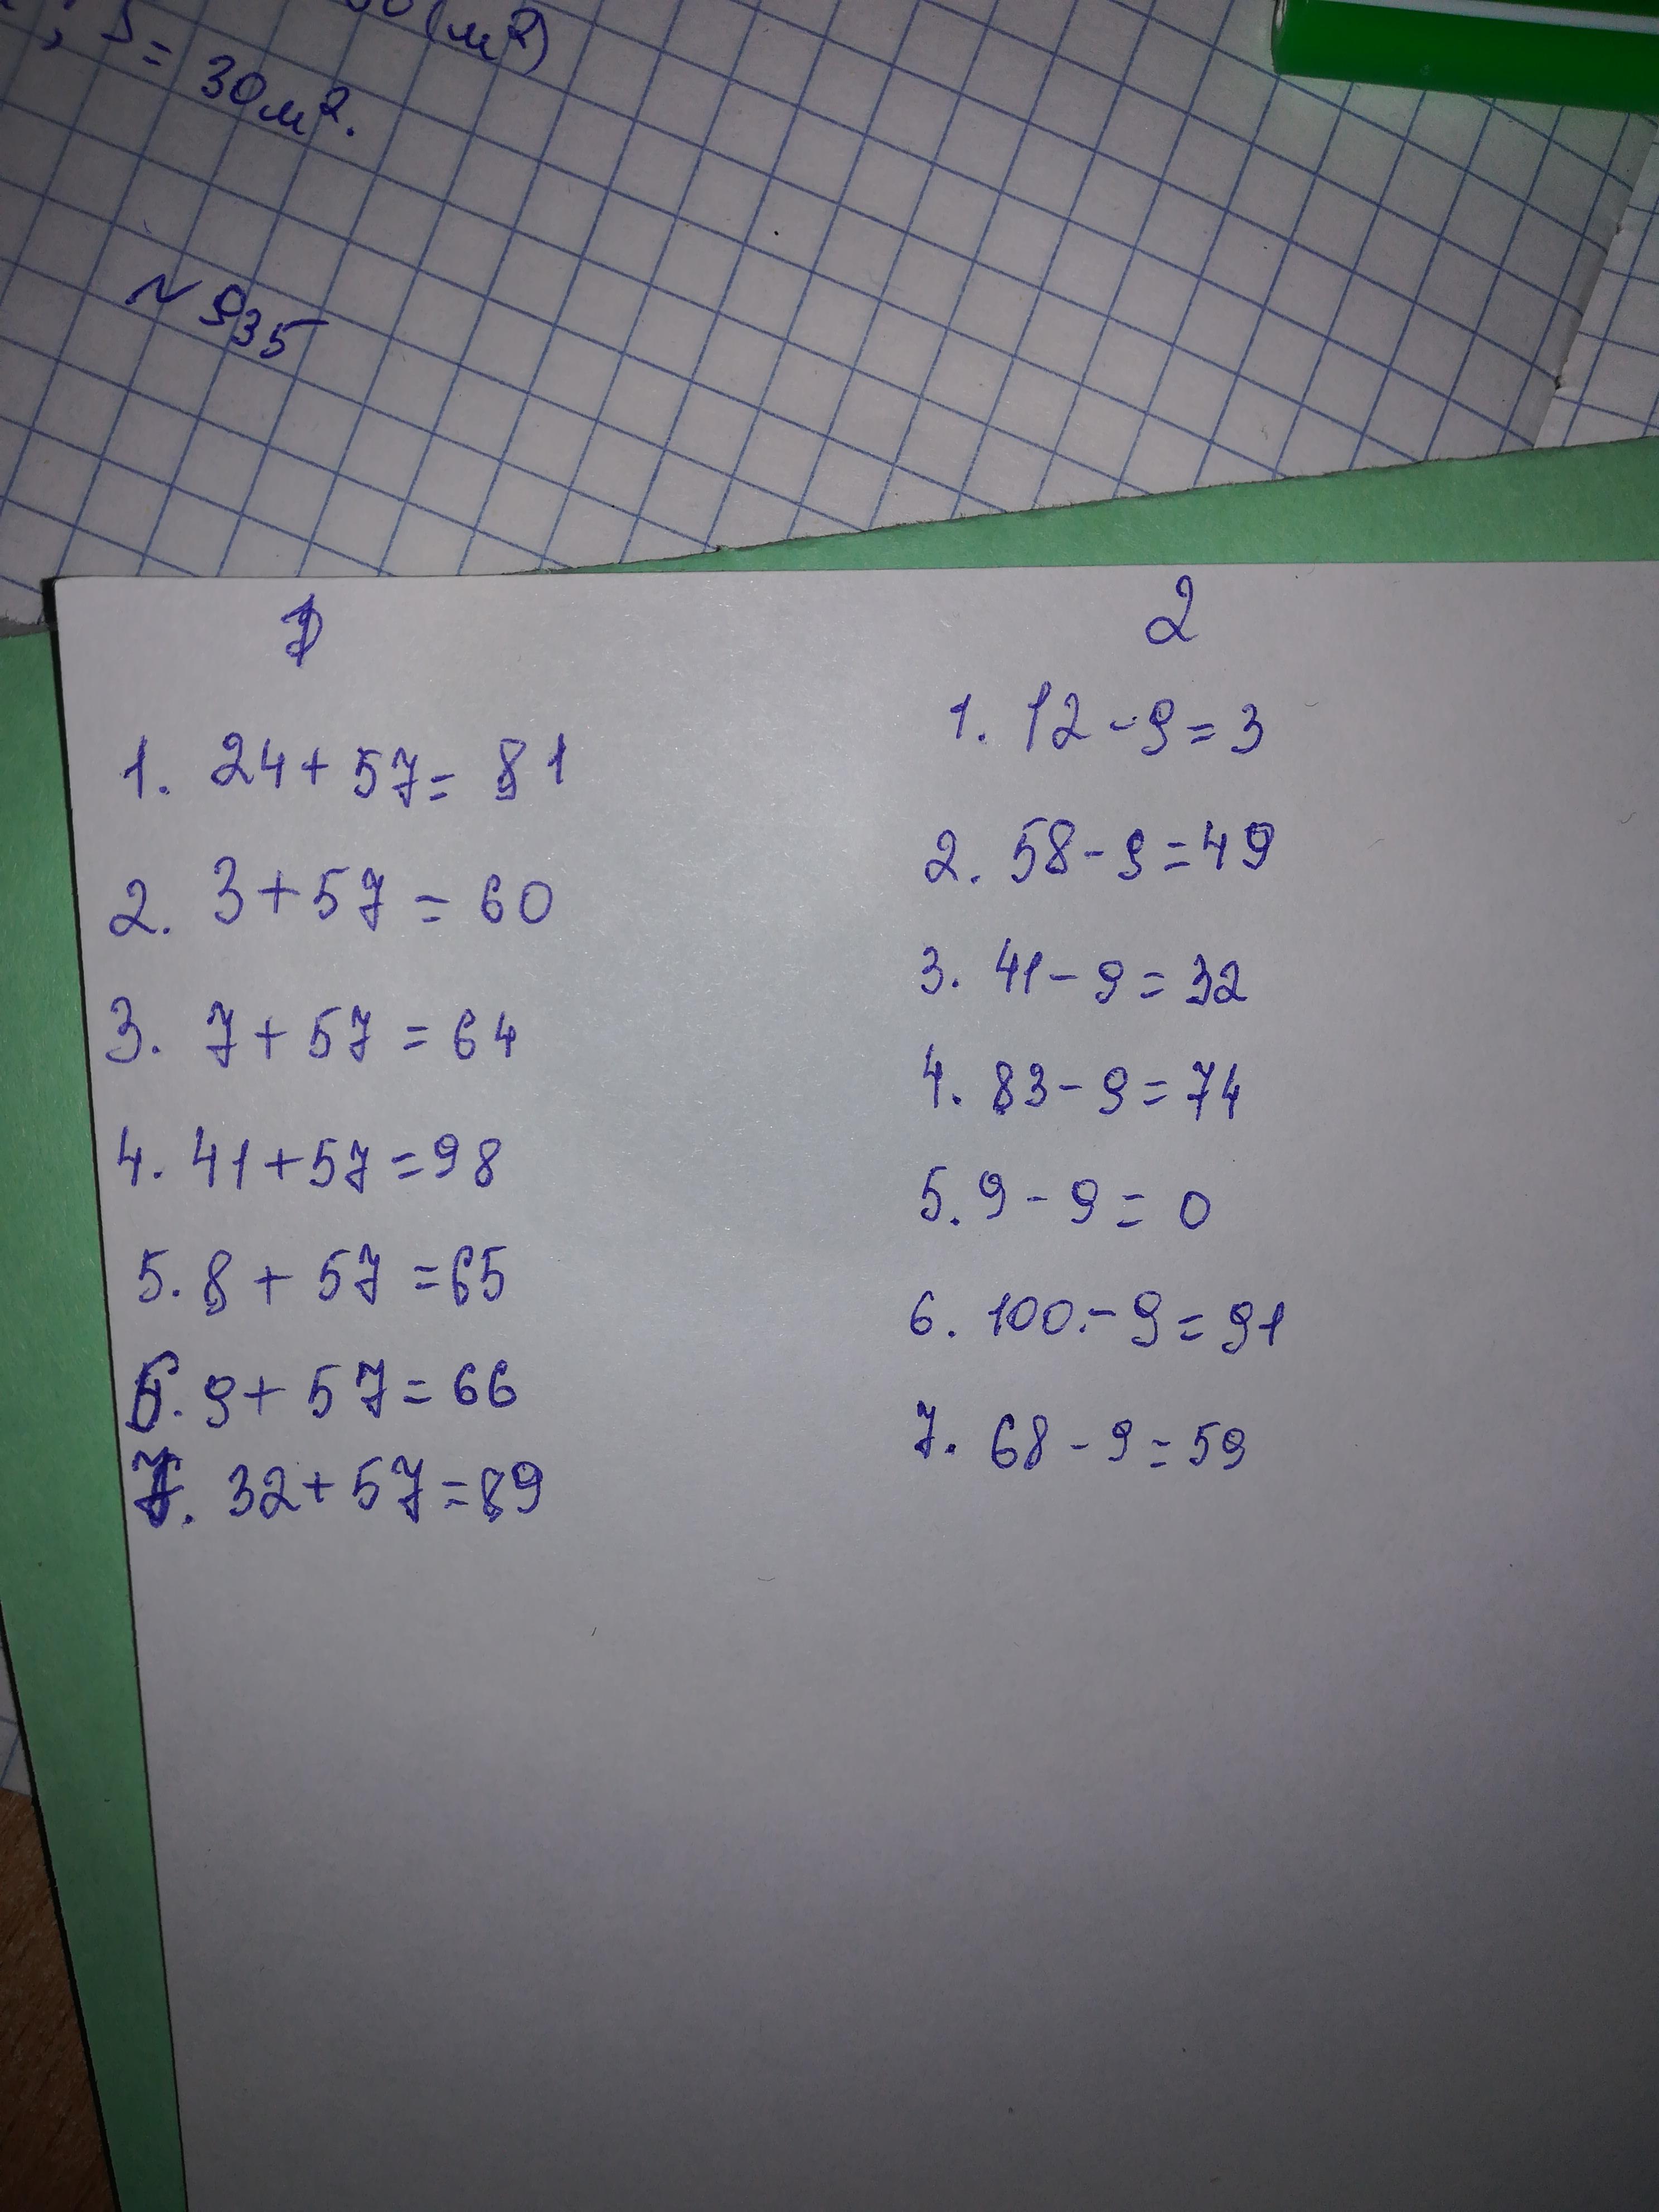 S = 30 м².
(м²)
N 935
1
1. 24 + 57 = 81
2. 3 + 57 = 60
3. 7 + 57 = 64
4. 41 + 57 = 98
5. 8 + 57 = 65
6. 9 + 57 = 66
7. 32 + 57 = 89
2
1. 12 - 9 = 3
2. 58 - 9 = 49
3. 41 - 9 = 32
4. 83 - 9 = 74
5. 9 - 9 = 0
6. 100 - 9 = 91
7. 68 - 9 = 59